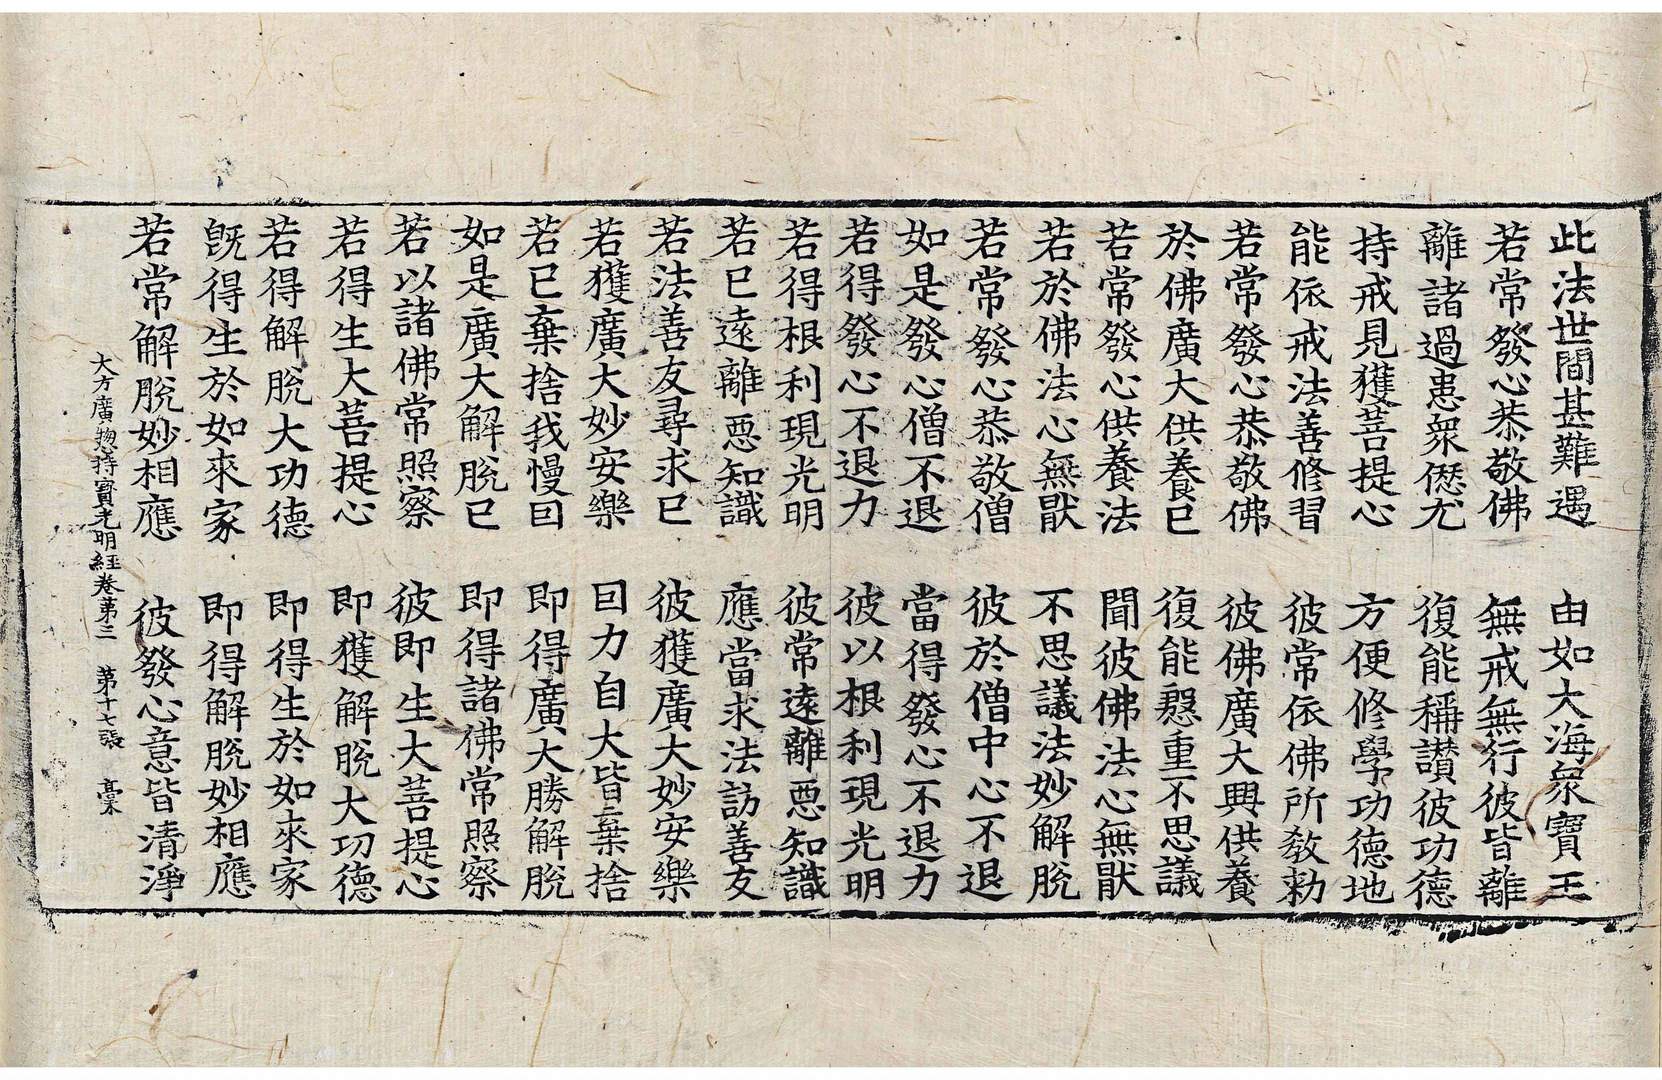 此法世間甚難遇　由如大海衆寶王
若常發心恭敬佛　無戒無行彼皆離
離諸過患衆僽尤　復能稱讃彼功德
持戒見獲菩提心　方便修學功德地
能依戒法善修習　彼常依佛所敎勑
若常發心恭敬佛　彼佛廣大興供養
於佛廣大供養已　復能慇重不思議
若常發心供養法　聞彼佛法心無猒
若於佛法心無猒　不思議法妙解脫
若常發心恭敬僧　彼於僧中心不退
如是發心僧不退　當得發心不退力
若得發心不退力　彼以根利現光明
若得根利現光明　彼常遠離惡知識
若已遠離惡知識　應當求法訪善友
若法善友尋求已　彼獲廣大妙安樂
若獲廣大妙安樂　因力自大皆棄捨
若已棄捨我慢因　即得廣大勝解脫
如是廣大解脫已　即得諸佛常照察
若以諸佛常照察　彼即生大菩提心
若得生大菩提心　即獲解脫大功德
若得解脫大功德　即得生於如來家
旣得生於如來家　即得解脫妙相應
若常解脫妙相應　彼發心意皆清淨
大方廣揔持寳光明經卷第三　第十七張